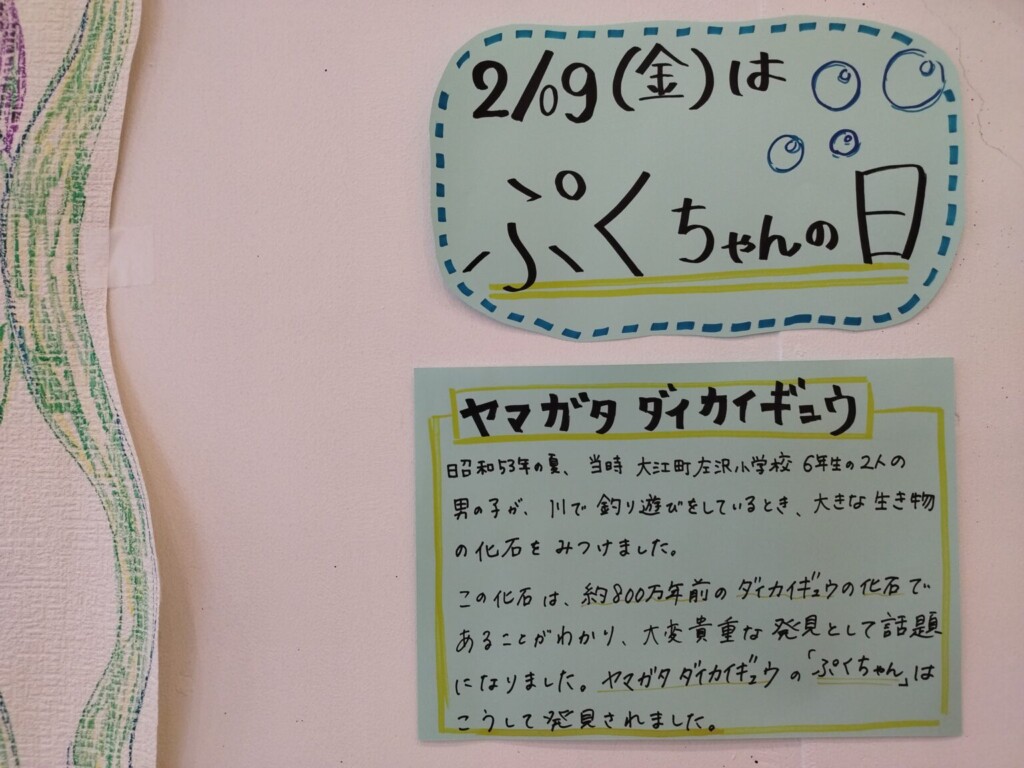 2/09(金)は
ぷくちゃんの日
ヤマガタダイカイギュウ
昭和53年の夏、当時 大江町左沢小学校 6年生の2人の
男の子が、川で釣り遊びをしているとき、大きな生き物
の化石をみつけました。
この化石は、約800万年前のダイカイギュウの化石で
あることがわかり、大変貴重な発見として話題
になりました。ヤマガタダイカイギュウの「ぷくちゃん」は
こうして発見されました。